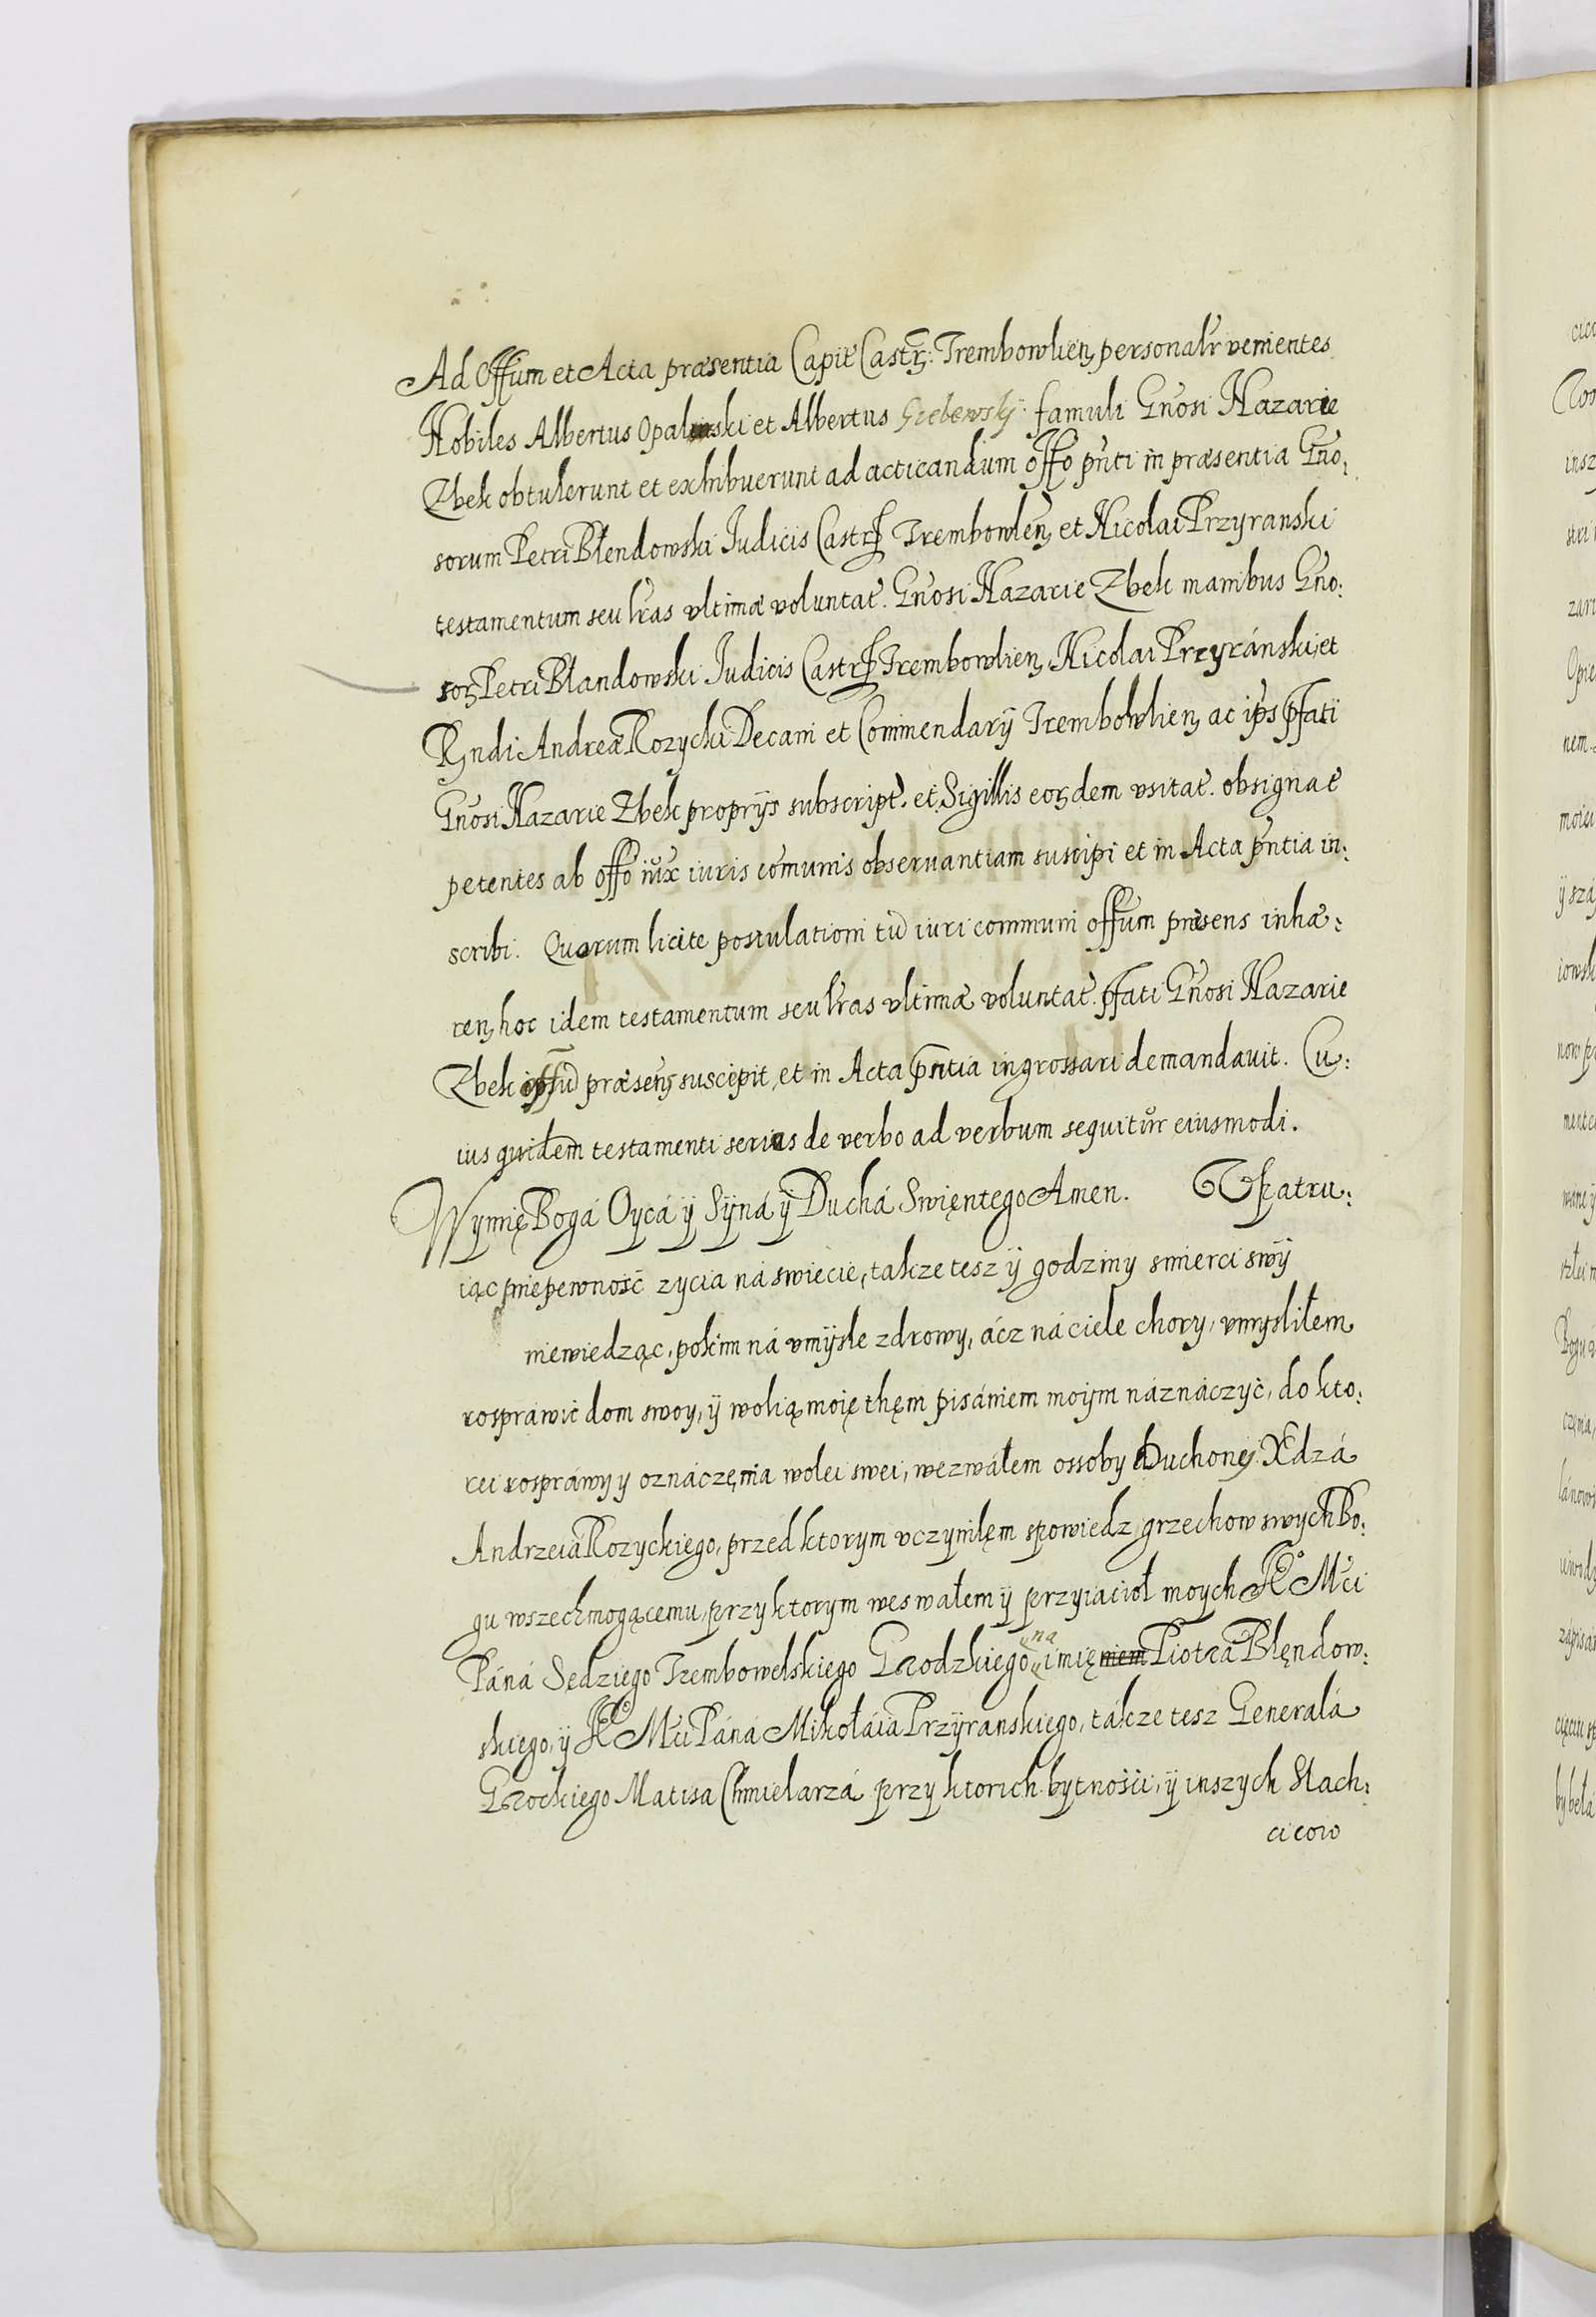 Ad Offum et Acta præsentia Capit Castr: Trembowlien personalr venientes
Nobiles Albertus Opalinski et Albertus Grebewskij famuli Gnosi Nazarie
Zbek obtulerunt et exhibuerunt ad acticandum offo pnti in præsentia Gno:
sorum Petri Błendowski Judicis Castr Trembowlen et Nicolai Przyranski
testamentum seu lras vltimæ voluntat. Gnosi Nazarie Zbek manibus Gno:
sor Petri Błandowski Judicis Castr Trembowlien, Nicolai Przyránski, et
Rndi Andreæ Rozycki Decani et Commendarÿ Trembowlien ac ips pfati
Gnosi Nazarie Zbek proprÿs subscript. et Sigillis eordem vsitat. obsignat
petentes ab offo iux iuris comunis obseruantiam suscipi et in Acta pntia in:
scribi. Quorum licite postulationi tū iuri communi offum præsens inhæ:
ren hoc idem testamentum seu lras vltimæ voluntat. pfati Gnosi Nazarie
Zbek præsens suscepit, et in Acta pntia ingrossari demandauit. Cu:
ius quidem testamenti series de verbo ad verbum sequitur eiusmodi.
Wymię Bogá Oycá ÿ Sÿná ÿ Duchá Swięntego Amen. Vpatru:
iąc niepewność zycia ná swiecie, takze tesz ÿ godziny smierci swÿ
niewiedząc, pokim ná vmÿsle zdrowy, ácz ná ciele chory, vmysliłem
rosprawić dom swoy, ÿ wolią moię thęm pisániem moijm náznáczyć, do kto:
rei rospráwy y oznáczęnia wolei swei, wezwáłem ossoby Duchonej Xdzá
Andrzeiá Rozyckiego, przed ktorym vczynilęm spowiedz grzechow swych Bo:
gu wszechmogącemu, przy ktorym weswałem ÿ przyiacioł moych Je° Mci
Páná Sędziego Trembowelskiego Grodzkiego na imię niem Piotrá Błęndow:
skiego, ÿ Je° Mci Páná Mikołáiá Przÿranskiego, tákze tesz Generalá
Grockiego Matisa Chmielarzá przy ktorich bytności, ÿ inszych Slach:
cicow